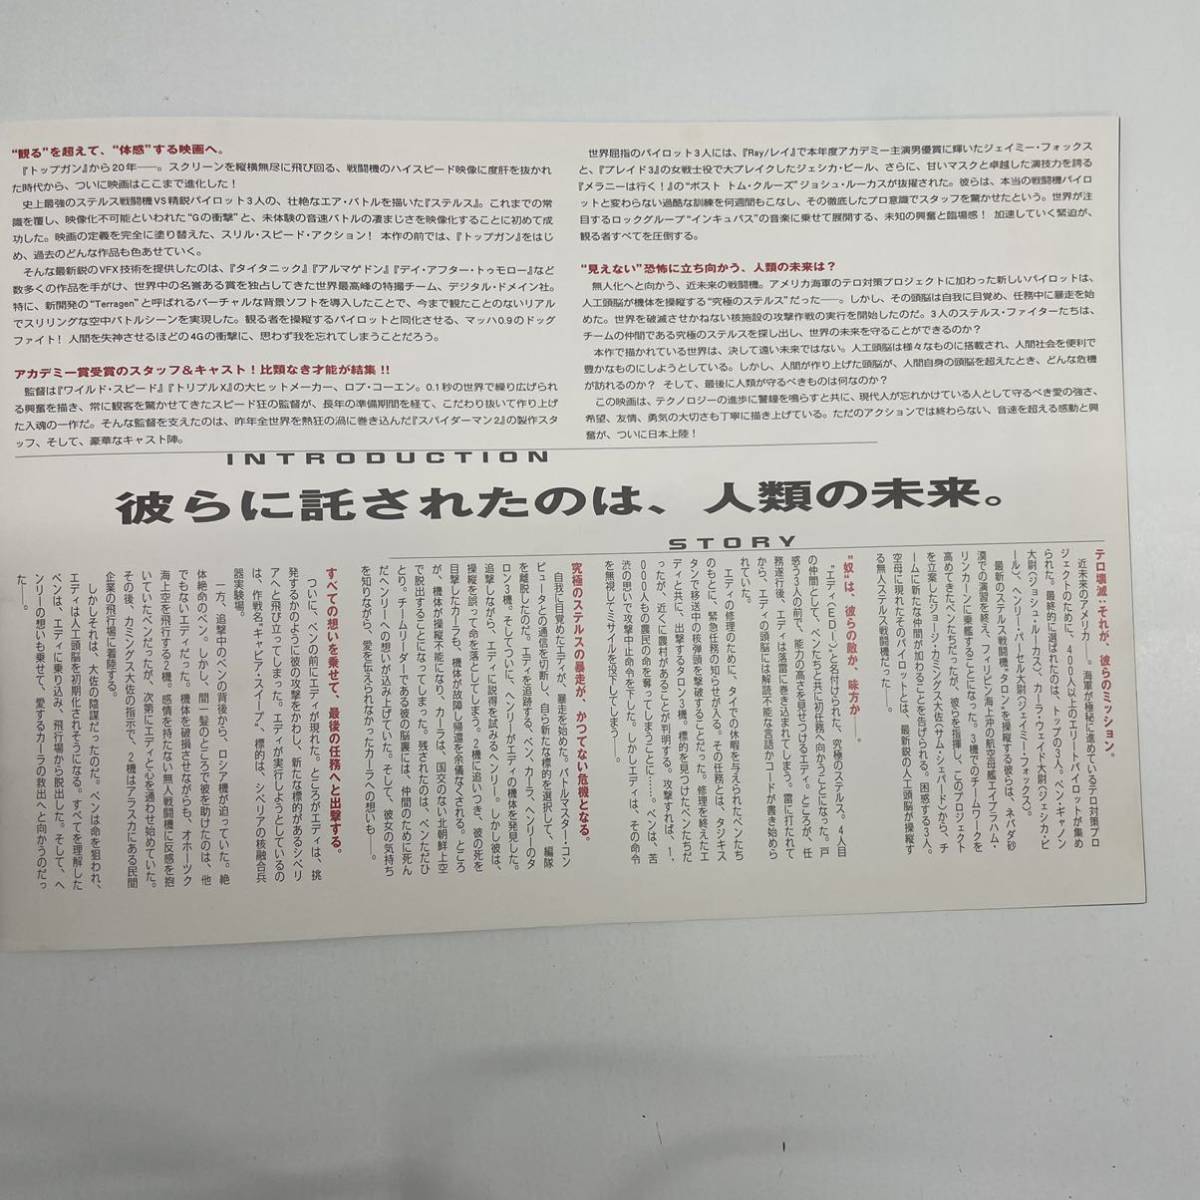 “観る”を超えて、“体感”する映画へ。
『トップガン』から20年――。スクリーンを縦横無尽に飛び回る、戦闘機のハイスピード映像に度肝を抜かれ
た時代から、ついに映画はここまで進化した！
史上最強のステルス戦闘機VS精鋭パイロット3人の、壮絶なエア・バトルを描いた『ステルス』。これまでの常
識を覆し、映像化不可能といわれた“Gの衝撃”と、未体験の音速バトルの凄まじさを映像化することに初めて成
功した。映画の定義を完全に塗り替えた、スリル・スピード・アクション！ 本作の前では、『トップガン』をはじ
め、過去のどんな作品も色あせていく。
そんな最新鋭のVFX技術を提供したのは、『タイタニック』『アルマゲドン』『デイ・アフター・トゥモロー』など
数多くの作品を手がけ、世界中の名誉ある賞を独占してきた世界最高峰の特撮チーム、デジタル・ドメイン社。
特に、新開発の“Terragen”と呼ばれるバーチャルな背景ソフトを導入したことで、今まで観たことのないリアル
でスリリングな空中バトルシーンを実現した。観る者を操縦するパイロットと同化させる、マッハ0.9のドッグ
ファイト！ 人間を失神させるほどの4Gの衝撃に、思わず我を忘れてしまうことだろう。
アカデミー賞受賞のスタッフ＆キャスト！比類なき才能が結集！！
監督は『ワイルド・スピード』『トリプルX』の大ヒットメーカー、ロブ・コーエン。0.1秒の世界で繰り広げられ
る興奮を描き、常に観客を驚かせてきたスピード狂の監督が、長年の準備期間を経て、こだわり抜いて作り上げ
た入魂の一作だ。そんな監督を支えたのは、昨年全世界を熱狂の渦に巻き込んだ『スパイダーマン2』の製作スタ
ッフ、そして、豪華なキャスト陣。
世界屈指のパイロット3人には、『Ray/レイ』で本年度アカデミー主演男優賞に輝いたジェイミー・フォックス
と、『ブレイド3』の女戦士役で大ブレイクしたジェシカ・ビール、さらに、甘いマスクと卓越した演技力を誇る
『メラニーは行く！』の“ポスト トム・クルーズ”ジョシュ・ルーカスが抜擢された。彼らは、本当の戦闘機パイロ
ットと変わらない過酷な訓練を何週間もこなし、その徹底したプロ意識でスタッフを驚かせたという。世界が注
目するロックグループ“インキュバス”の音楽に乗せて展開する、未知の興奮と臨場感！ 加速していく緊迫が、
観る者すべてを圧倒する。
“見えない”恐怖に立ち向かう、人類の未来は？
無人化へと向かう、近未来の戦闘機。アメリカ海軍のテロ対策プロジェクトに加わった新しいパイロットは、
人工頭脳が機体を操縦する“究極のステルス”だった――。しかし、その頭脳は自我に目覚め、任務中に暴走を始
めた。世界を破滅させかねない核施設の攻撃作戦の実行を開始したのだ。3人のステルス・ファイターたちは、
チームの仲間である究極のステルスを探し出し、世界の未来を守ることができるのか？
本作で描かれている世界は、決して遠い未来ではない。人工頭脳は様々なものに搭載され、人間社会を便利で
豊かなものにしようとしている。しかし、人間が作り上げた頭脳が、人間自身の頭脳を超えたとき、どんな危機
が訪れるのか？ そして、最後に人類が守るべきものは何なのか？
この映画は、テクノロジーの進歩に警鐘を鳴らすと共に、現代人が忘れかけている人として守るべき愛の強さ、
希望、友情、勇気の大切さも丁寧に描き上げている。ただのアクションでは終わらない、音速を超える感動と興
奮が、ついに日本上陸！
INTRODUCTION
彼らに託されたのは、人類の未来。
STORY
テロ壊滅：それが、彼らのミッション。
近未来のアメリカ――。海軍が極秘に進めているテロ対策プロ
ジェクトのために、400人以上のエリートパイロットが集め
られた。最終的に選ばれたのは、トップの3人。ベン・ギャノン
大尉〈ジョシュ・ルーカス〉、カーラ・ウェイド大尉〈ジェシカ・ビ
ール〉、ヘンリー・パーセル大尉〈ジェイミー・フォックス〉。
最新のステルス戦闘機“タロン”を操縦する彼らは、ネバダ砂
漠での演習を終え、フィリピン海上沖の航空母艦エイブラハム・
リンカーンに乗艦することになった。3機でのチームワークを
高めてきたベンたちだったが、彼らを指揮し、このプロジェクト
を立案したジョージ・カミングス大佐〈サム・シェパード〉から、チ
ームに新たな仲間が加わることを告げられる。困惑する3人。
空母に現れたそのパイロットとは、最新鋭の人工頭脳が操縦す
る無人ステルス戦闘機だった――。
“奴”は、彼らの敵か、味方か――。
“エディ〈EDI〉”と名付けられた、究極のステルス。4人目
の仲間として、ベンたちと共に初任務へ向かうことになった。戸
惑う3人の前で、能力の高さを見せつけるエディ。ところが、任
務遂行後、エディは落雷に巻き込まれてしまう。雷に打たれて
から、エディの頭脳には解読不能な言語やコードが書き始めら
れていた。
エディの修理のために、タイでの休暇を与えられたベンたち
のもとに、緊急任務の知らせが入る。その任務とは、タジキス
タンで移送中の核弾頭を撃破することだった。修理を終えたエ
ディと共に、出撃するタロン3機。標的を見つけたベンたちだ
ったが、近くに農村があることが判明する。攻撃すれば、1,
000人もの農民の命を奪ってしまうことに……。ベンは、苦
渋の思いで攻撃中止命令を下した。しかしエディは、その命令
を無視してミサイルを投下してしまう――
究極のステルスの暴走が、かつてない危機となる。
自我に目覚めたエディが、暴走を始めた。バトルマスター・コン
ピュータとの通信を切断し、自ら新たな標的を選択して、編隊
を離脱したのだ。エディを追跡する、ベン、カーラ、ヘンリーのタ
ロン3機。そしてついに、ヘンリーがエディの機体を発見した。
追撃しながら、エディに説得を試みるヘンリー。しかし彼は、
操縦を誤って命を落としてしまう。2機に追いつき、彼の死を
目撃したカーラも、機体が故障し帰還を余儀なくされる。ところ
が、機体が操縦不能になり、カーラは、国交のない北朝鮮上空
で脱出することになってしまった。残されたのは、ベンただひ
とり。チームリーダーである彼の脳裏には、仲間のために死ん
だヘンリーへの想いが込み上げていた。そして、彼女の気持ち
を知りながら、愛を伝えられなかったカーラへの想いも――。
すべての想いを乗せて、最後の任務へと出撃する。
ついに、ベンの前にエディが現れた。ところがエディは、挑
発するかのように彼の攻撃をかわし、新たな標的があるシベリ
アへと飛び立ってしまった。エディが実行しようとしているの
は、作戦名“キャビア・スイープ”。標的は、シベリアの核融合兵
器実験場。
一方、追撃中のベンの背後から、ロシア機が迫っていた。絶
体絶命のベン。しかし、間一髪のところで彼を助けたのは、他
でもないエディだった。機体を破損させながらも、オホーツク
海上空を飛行する2機。感情を持たない無人戦闘機に反感を抱
いていたベンだったが、次第にエディと心を通わせ始めていた。
その後、カミングス大佐の指示で、2機はアラスカにある民間
企業の飛行場に着陸する。
しかしそれは、大佐の陰謀だったのだ。ベンは命を狙われ、
エディは人工頭脳を初期化されそうになる。すべてを理解した
ベンは、エディに乗り込み、飛行場から脱出した。そして、ヘ
ンリーの想いも乗せて、愛するカーラの救出へと向かうのだっ
た――。